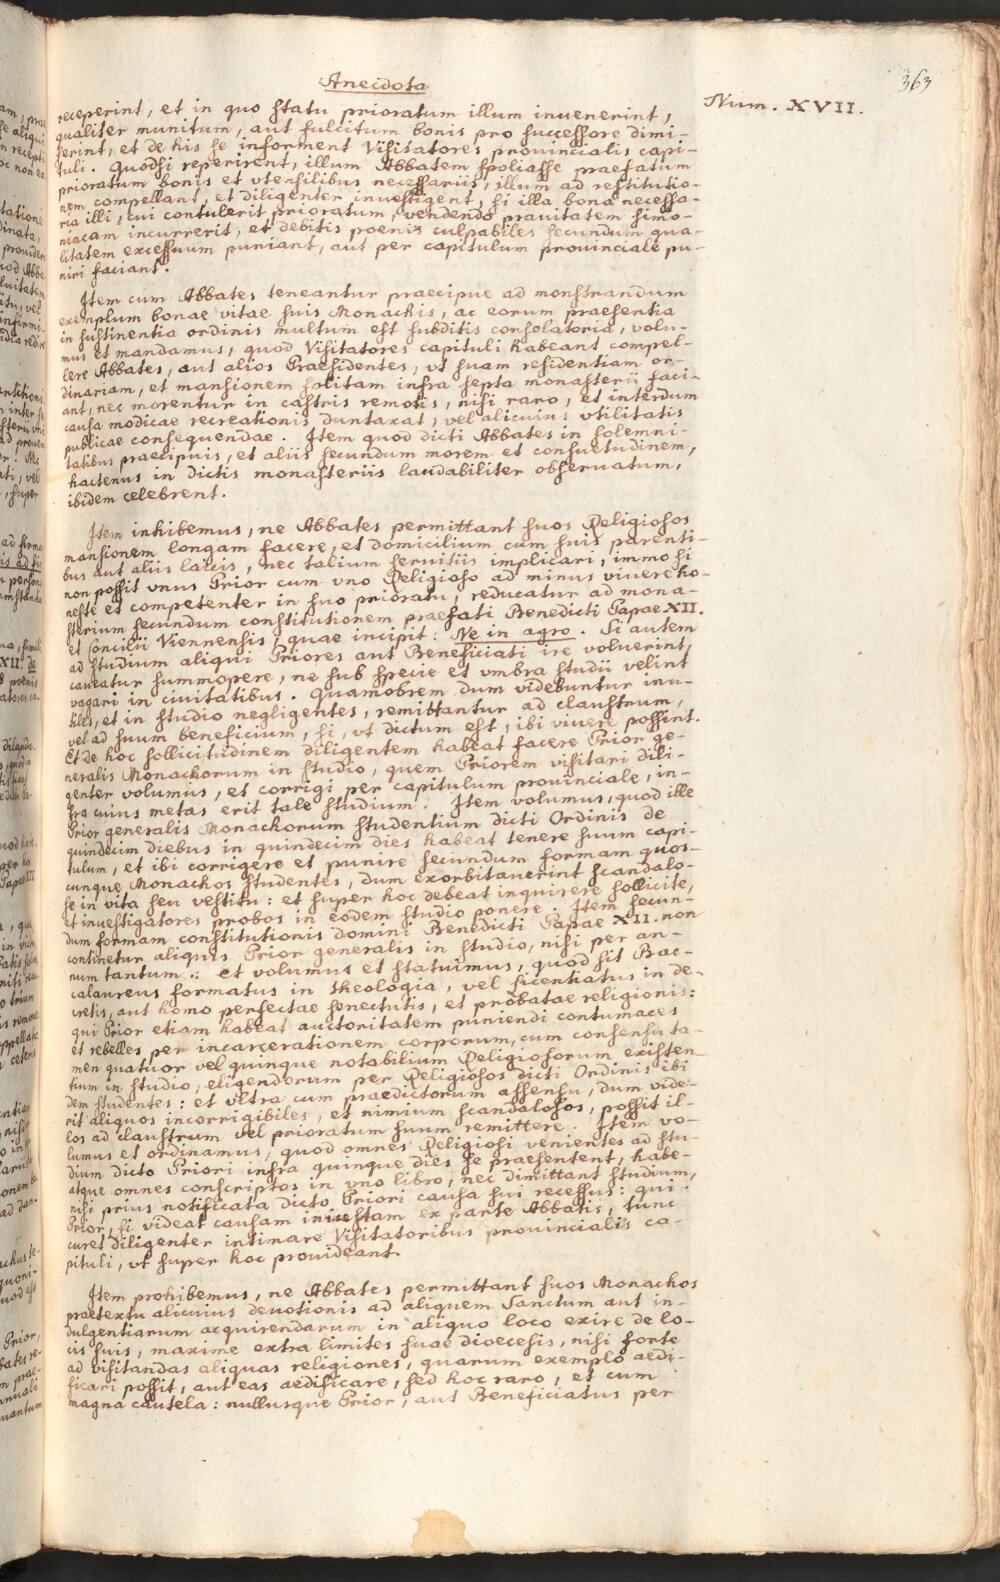 363
Anecdota
Num. XVII.
receperint, et in quo statu prioratum illum inuenerint,
qualiter munitum, aut fulcitum bonis pro successore dimi-
serint, et de his se informent Visitatores prouincialis capi-
tuli. Quodsi reperirent, illum Abbatem spoliasse praefatum
prioratum bonis et vtensilibus necessariis, illum ad restitutio-
nem compellant, et diligenter inuestigent, si illa bona necessa-
ria illi, cui contulerit prioratum, vendendo prauitatem simo-
niacam incurrerit, et debitis poenis culpabiles secundum qua-
litatem excessuum puniant, aut per capitulum prouinciale pu-
niri faciant.
Item cum Abbates teneantur praecipue ad monstrandum
exemplum bonae vitae suis Monachis, ac eorum praesentia
in sustinentia ordinis multum est subditis consolatoria, volu-
mus et mandamus, quod Visitatores capituli habeant compel-
lere Abbates, aut alios Praesidentes, vt suam residentiam or-
dinariam, et mansionem solitam infra septa monasterii faci-
ant, nec morentur in castris remotis, nisi raro, et interdum
causa modicae recreationis duntaxat, vel alicuius vtilitatis
publicae consequendae. Item quod dicti Abbates in solemni-
tatibus praecipuis, et aliis secundum morem et consuetudinem,
hactenus in dictis monasteriis laudabiliter obseruatum,
ibidem celebrent.
Item inhibemus, ne Abbates permittant suos Religiosos
mansionem longam facere, et domicilium cum suis parenti-
bus aut aliis laicis, nec talium seruitiis implicari, immo si
non possit vnus Prior cum vno Religioso ad minus viuere ho-
neste et competenter in suo prioratu, reducatur ad mona-
sterium secundum constitutionem praefati Benedicti Papae XII.
et Concilii Viennensis, quae incipit: Ne in agro. Si autem
ad studium aliqui Priores aut Beneficiati ire voluerint,
caueatur summopere, ne sub specie et vmbra studii velint
vagari in ciuitatibus. Quamobrem dum videbuntur inu-
tiles, et in studio negligentes, remittantur ad claustrum,
vel ad suum beneficium, si, vt dictum est, ibi viuere possint.
Et de hoc sollicitudinem diligentem habeat facere Prior ge-
neralis Monachorum in studio, quem Priorem visitari dili-
genter volumus, et corrigi per capitulum prouinciale, in-
fra cuius metas erit tale studium. Item volumus, quod ille
Prior generalis Monachorum studentium dicti Ordinis de
quindecim diebus in quindecim dies habeat tenere suum capi-
tulum, et ibi corrigere et punire secundum formam quos-
cunque Monachos studentes, dum exorbitauerint scandalo-
se in vita seu vestitu: et super hoc debeat inquirere sollicite,
et inuestigatores probos in eodem studio ponere. Item secun-
dum formam constitutionis domini Benedicti Papae XII. non
continetur aliquis Prior generalis in studio, nisi per an-
num tantum: et volumus et statuimus, quod sit Bac-
calaureus formatus in theologia, vel licentiatus in de-
cretis, aut homo perfectae senectutis, et probatae religionis:
qui Prior etiam habeat auctoritatem puniendi contumaces
et rebelles, per incarcerationem corporum, cum consensu ta-
men quatuor vel quinque notabilium Religiosorum existen-
tium in studio, eligendorum per Religiosos dicti Ordinis ibi
dem studentes: et vltra cum praedictorum assensu, dum vide-
rit aliquos incorrigibiles, et nimium scandalosos, possit il-
los ad claustrum vel prioratum suum remittere. Item vo-
lumus et ordinamus, quod omnes Religiosi venientes ad stu-
dium dicto Priori infra quinque dies se praesentent, habe-
atque omnes conscriptos in vno libro, nec dimittant studium,
nisi prius notificata dicto Priori causa sui recessus: qui
Prior, si videat causam iniustam ex parte Abbatis, tunc
curet diligenter intimare Visitatoribus prouincialis ca-
pituli, vt super hoc prouideant.
Item prohibemus, ne Abbates permittant suos Monachos
praetextu alicuius deuotionis ad aliquem Sanctum aut in-
dulgentiarum acquirendarum in aliquo loco exire de lo-
cis suis, maxime extra limites suae dioecesis, nisi forte
ad visitandas aliquas religiones, quarum exemplo aedi-
ficari possit, aut eas aedificare, sed hoc raro, et cum
magna cautela: nullusque Prior, aut Beneficiatus per